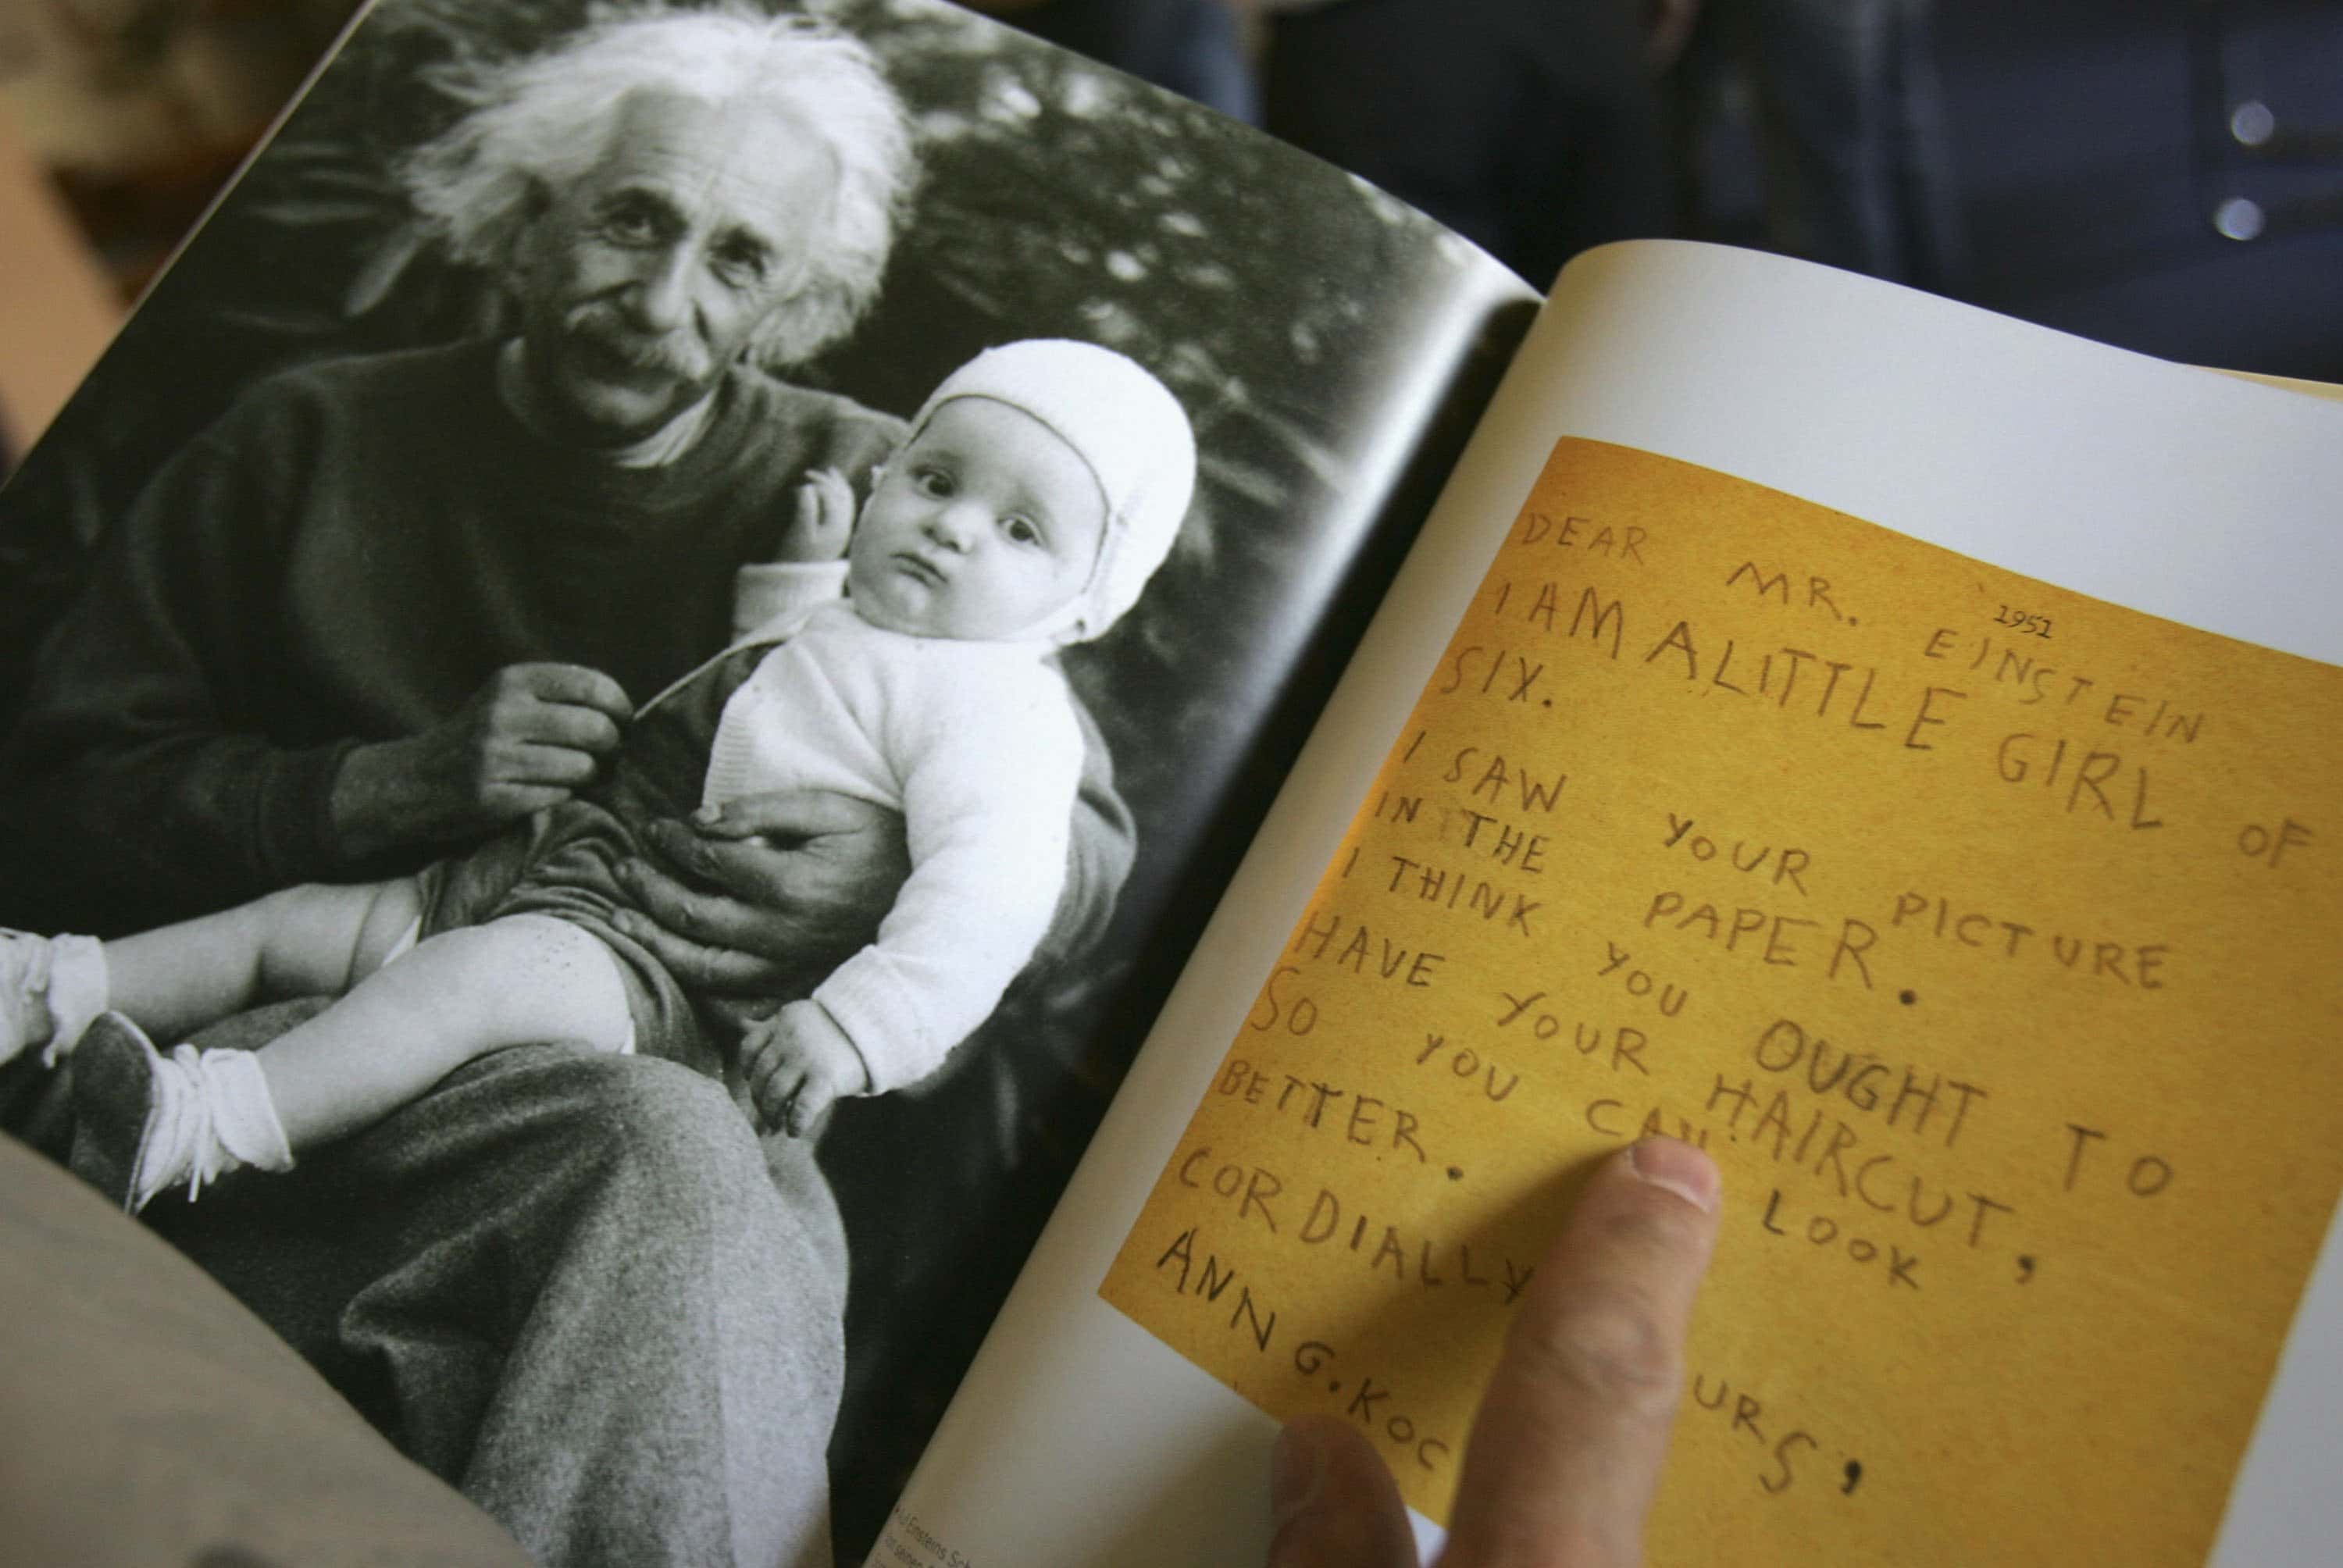 1951
DEAR MR. EINSTEIN
I AM A LITTLE GIRL OF
SIX.
I SAW YOUR PICTURE
IN THE PAPER.
I THINK YOU OUGHT TO
HAVE YOUR HAIRCUT,
SO YOU CAN LOOK
BETTER.
CORDIALLY URS,
ANN G. KOC
Auf Einsteins Sch